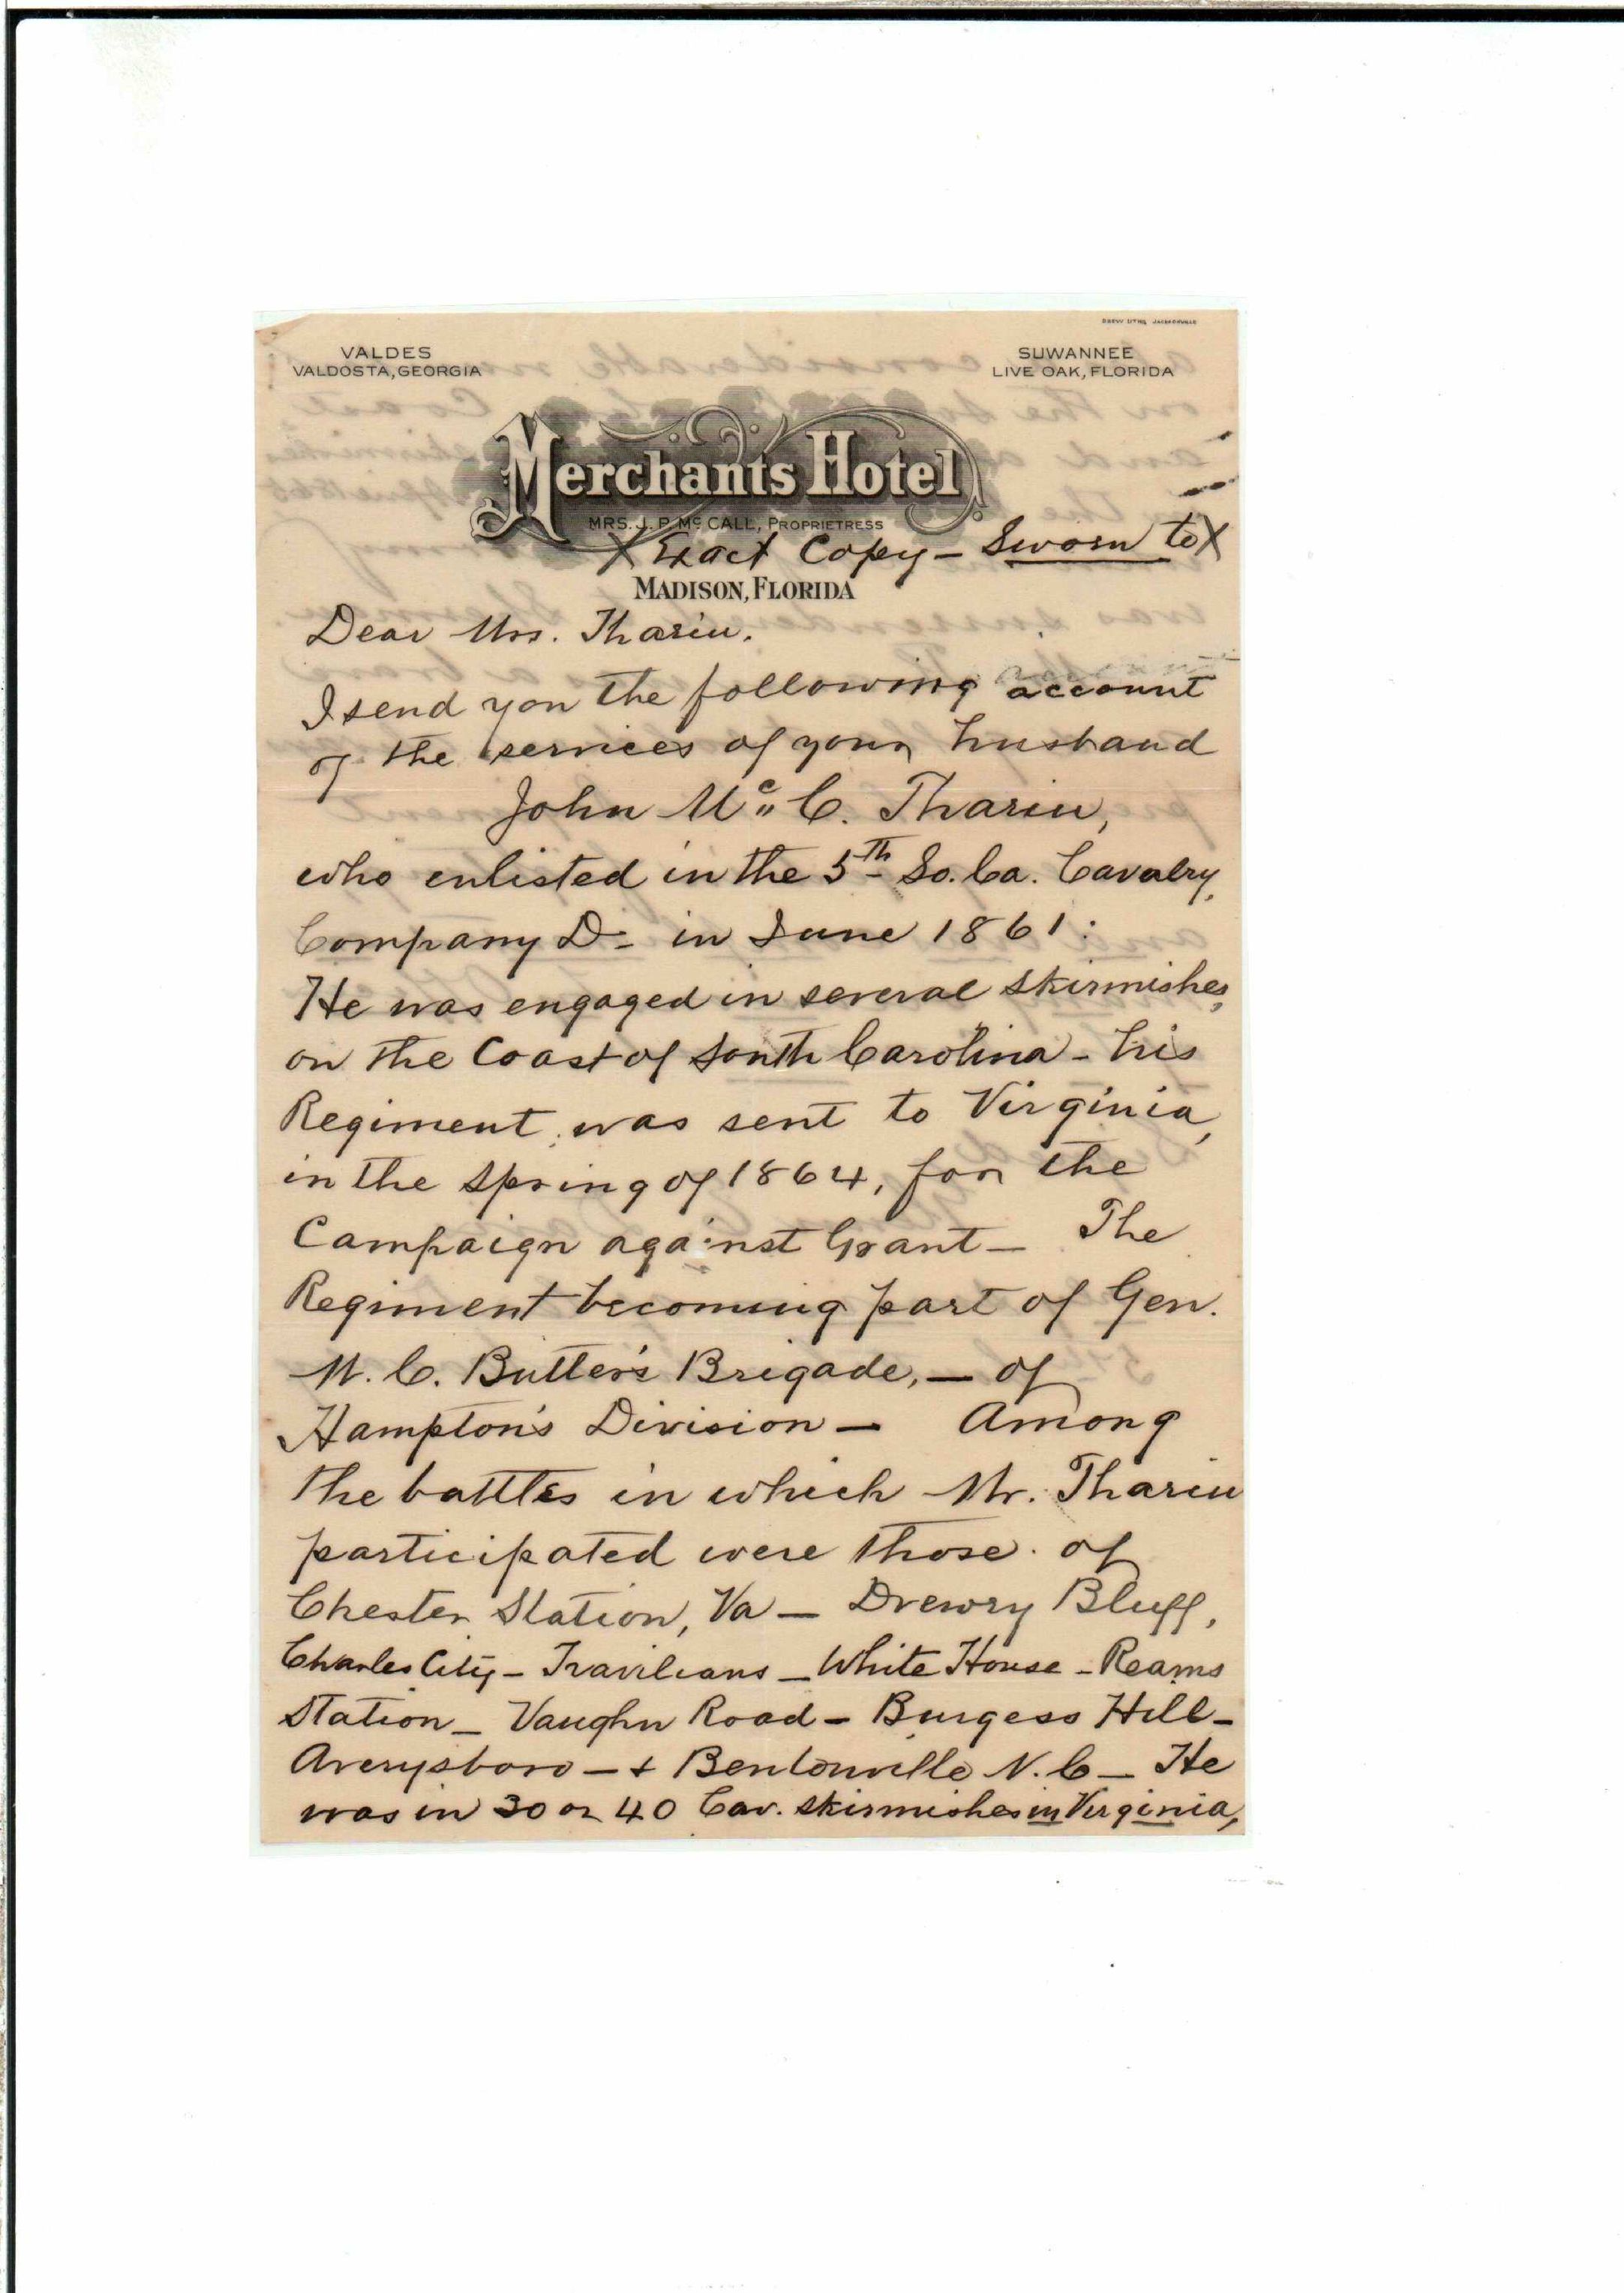 DREW LITHO. JACKSONVILLE
VALDES
VALDOSTA, GEORGIA
SUWANNEE
LIVE OAK, FLORIDA
Merchants Hotel
MRS. J. P. Mc CALL, PROPRIETRESS
X Exact Copy – Sworn to X
MADISON, FLORIDA
Dear Mrs. Tharin.
I send you the following account
of the services of your husband
John Mc C. Tharin,
who enlisted in the 5th So. Ca. Cavalry,
Company D– in June 1861:
He was engaged in several skirmishes,
on the Coast of South Carolina – his
Regiment was sent to Virginia,
in the spring of 1864, for the
Campaign against Grant – The
Regiment becoming part of Gen.
M. C. Butler's Brigade, – of
Hampton's Division – Among
the battles in which Mr. Tharin
participated were those of
Chester Station, Va – Drewry Bluff,
Charles City – Travilians – White House – Reams
Station – Vaughn Road – Burgess Hill –
Averysboro – + Bentonville N. C – He
was in 30 or 40 Cav. skirmishes in Virginia,